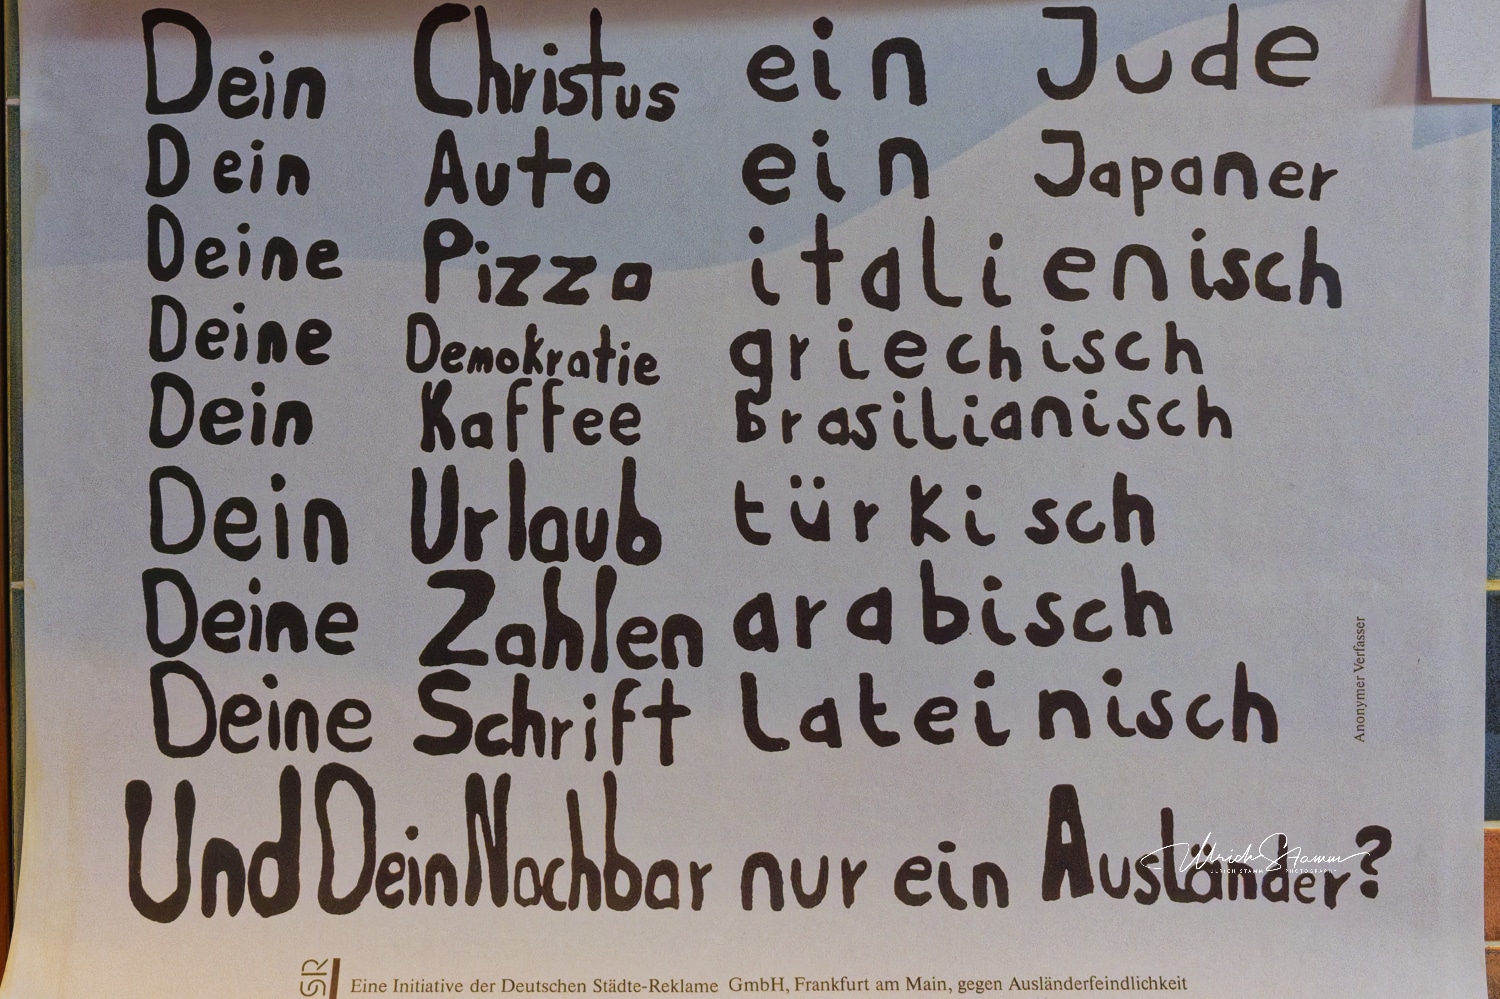 Dein Christus ein Jude
Dein Auto ein Japaner
Deine Pizza italienisch
Deine Demokratie griechisch
Dein Kaffee brasilianisch
Dein Urlaub türkisch
Deine Zahlen arabisch
Deine Schrift lateinisch
Und Dein Nachbar nur ein Ausländer?
Anonymer Verfasser
Ulrich Stamm
ULRICH STAMM PHOTOGRAPHY
DSR
Eine Initiative der Deutschen Städte-Reklame GmbH, Frankfurt am Main, gegen Ausländerfeindlichkeit